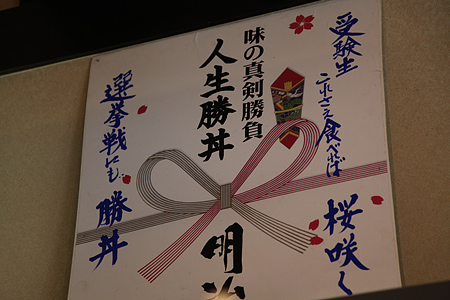 受験生
これさえ食べれば
桜咲く
味の真剣勝負
人生勝丼
明治
選挙戦にも
勝丼